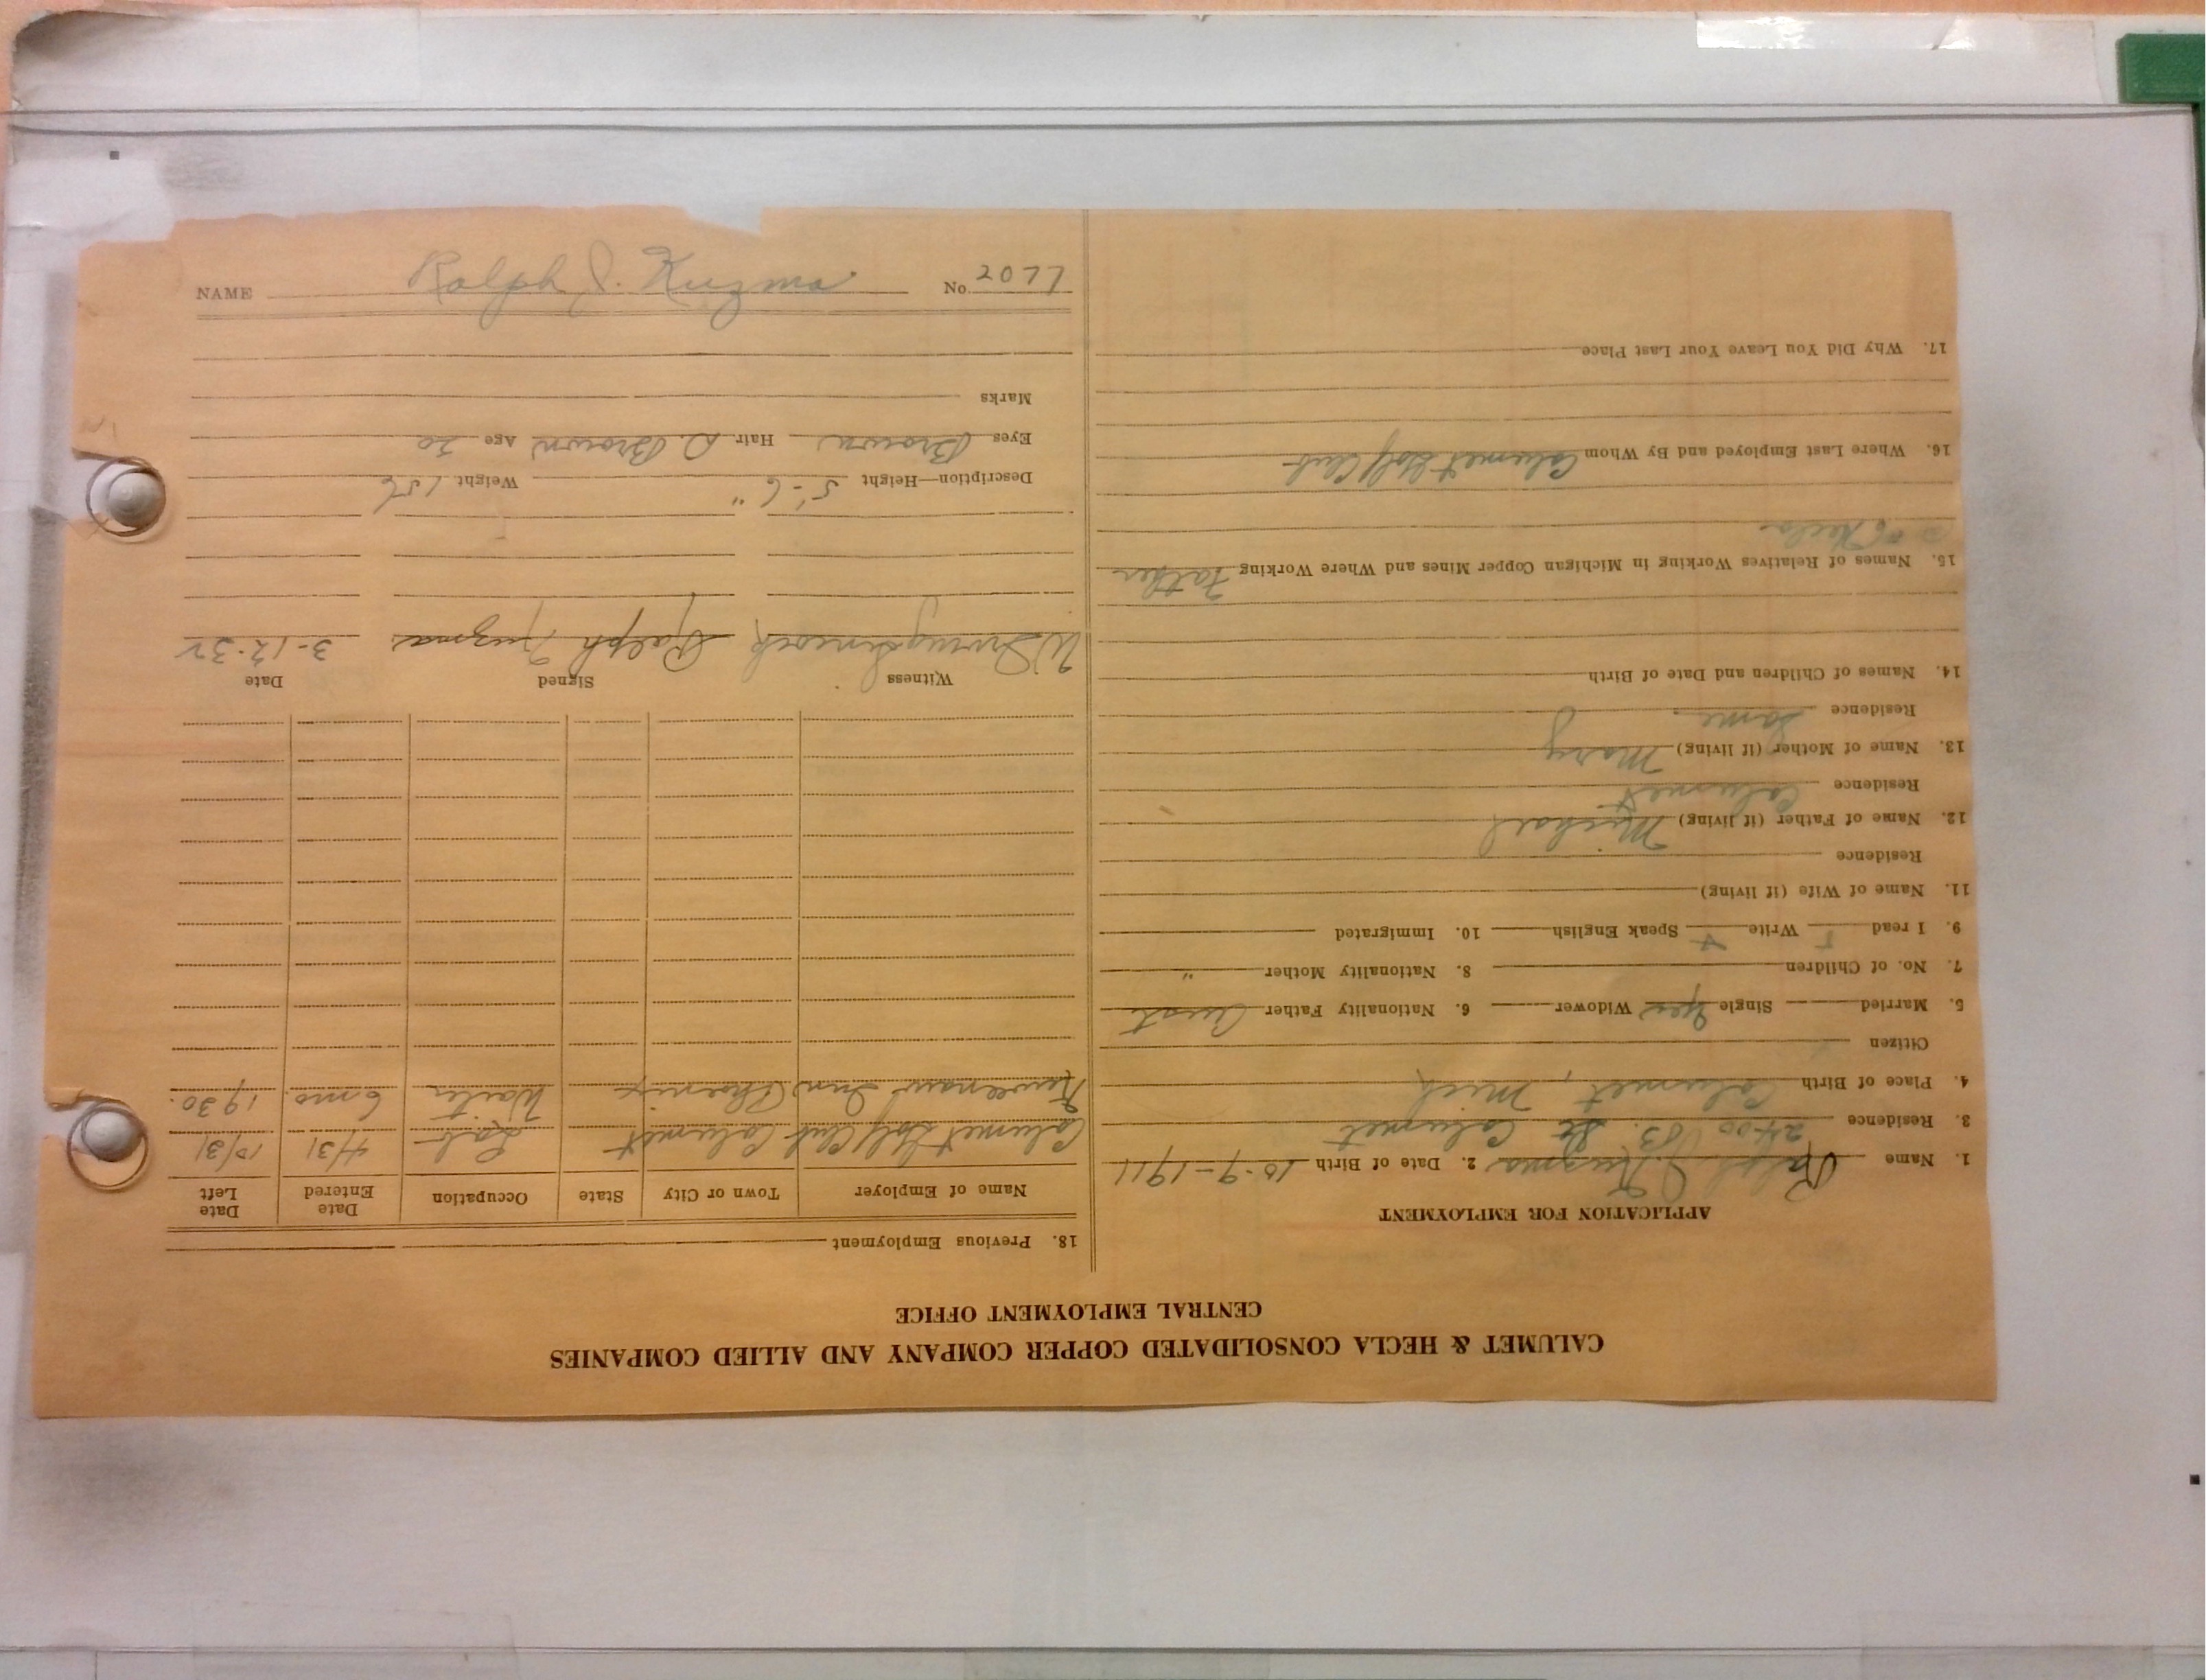 CALUMET & HECLA CONSOLIDATED COPPER COMPANY AND ALLIED COMPANIES
CENTRAL EMPLOYMENT OFFICE
APPLICATION FOR EMPLOYMENT
1. Name Ralph J. Kuzma 2. Date of Birth 10-9-1911
3. Residence 2400 B St. Calumet
4. Place of Birth Calumet, Mich
Citizen
5. Married Single Yes Widower 6. Nationality Father Aust
7. No. of Children 8. Nationality Mother "
9. I read Write Speak English 10. Immigrated
11. Name of Wife (if living)
Residence
12. Name of Father (if living) Michael
Residence Calumet
13. Name of Mother (if living) Mary
Residence Same
14. Names of Children and Date of Birth
15. Names of Relatives Working in Michigan Copper Mines and Where Working Father
Hecla
16. Where Last Employed and By Whom Calumet Golf Club
17. Why Did You Leave Your Last Place
18. Previous Employment
Name of Employer Town or City State Occupation Date Entered Date Left
Calumet Golf Club Calumet Lab 4/31 10/31
Keweenaw Inn Phoenix Waiter 6 mo. 1930.
Witness Signed Date
Ralph Kuzma 3-12-32
Description—Height 5'-6" Weight 156
Eyes Brown Hair D. Brown Age 20
Marks
NAME Ralph J. Kuzma No. 2077